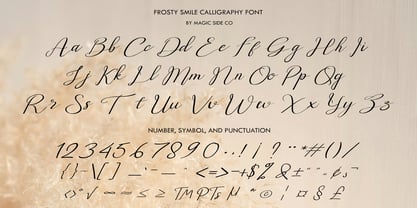 FROSTY SMILE CALLIGRAPHY FONT
BY MAGIC SIDE CO
Aa Bb Cc Dd Ee Ff Gg Hh Ii
Jj Kk Ll Mm Nn Oo Pp Qq
Rr Ss Tt Uu Vv Ww Xx Yy Zz
NUMBER, SYMBOL, AND PUNCTUATION
1 2 3 4 5 6 7 8 9 0 . , ! ¡ ? " * # ( ) /